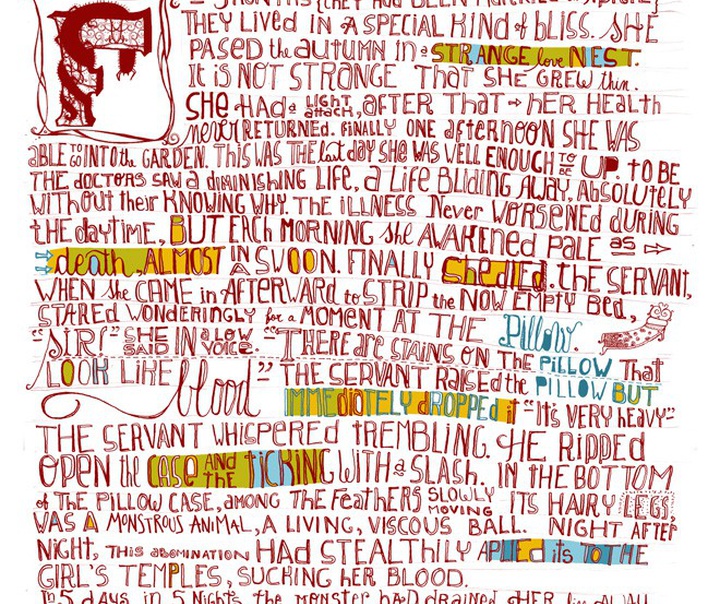 F
THEY LIVED IN A SPECIAL KIND of bLISS. SHE
PASED the AUTUMN IN a STRANGE love NIEST.
It is NOT STRANGE THAT SHE GREW thin.
SHE HAD a LIGHT attach, AFTER THAT → HER HEALTH
never RETURNED. FINALLY ONE afternoon SHE WAS
ABLE TO GO INTO the GARDEN. THIS WAS THE last day SHE WAS WELL ENOUGH TO BE UP. TO BE
THE DOCTORS SAW a diMiNiSHiNG LIFE, a LIFE BLIDING AWAY, AbSOLUTELY
WITHOUT their KNOWING WHY. THE ILLNESS Never WORSENED dURING
tHE daytime, BUT EACH MORNING she AWAKENED PALE as ⇨
⇨ death, ALMOST IN A SWOON. FINALLY SheDIED. the SERVANT,
WHEN she CAME in AFTERWARD to STRIP the NOW EMPTY bed,
STARED WONDERINGLY for a MOMENT AT THE Pillow.
"SIR!" SHE SAID IN a LOW VOICE. "THERE are STAINS ON THE PILLOW THAT
LOOK LIKE blood" THE SERVANT RAISEd the PILLOW BUT
IMMEdiATELY dROPPEd it "It's VERY heavy"
THE SERVANT WHISPERED tREMBLING. HE RIPPED
OPEN the CASE AND the tICKING WITH a SLASH. IN THE BOTTOM
of THE PILLOW CASE, AMONG THE FEATHERS SLOWLY MOVING ITS HAIRY LEGS,
WAS A MONSTROUS ANIMAL, A LIVING, VISCOUS BALL. NIGHT AFTER
NIGHT, THIS abOMINATION HAd STEALTHILY APLIEd its TO THE
GIRL'S TEMPLES, SUCKING hER BLOOD.
In 5 dAYS in 5 NIGHTS the MONSTER HAD DRAINED